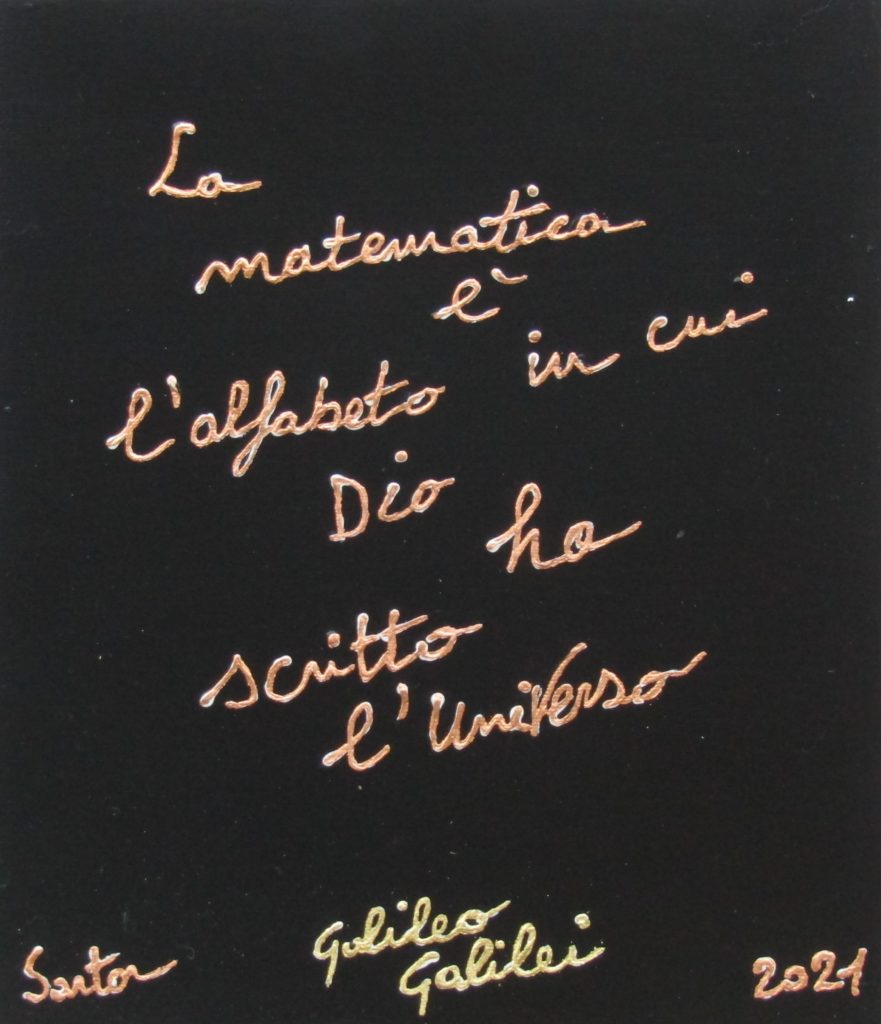 La
matematica
è
l'alfabeto in cui
Dio ha
scritto
l'Universo
Galileo
Galilei
Sartor 2021